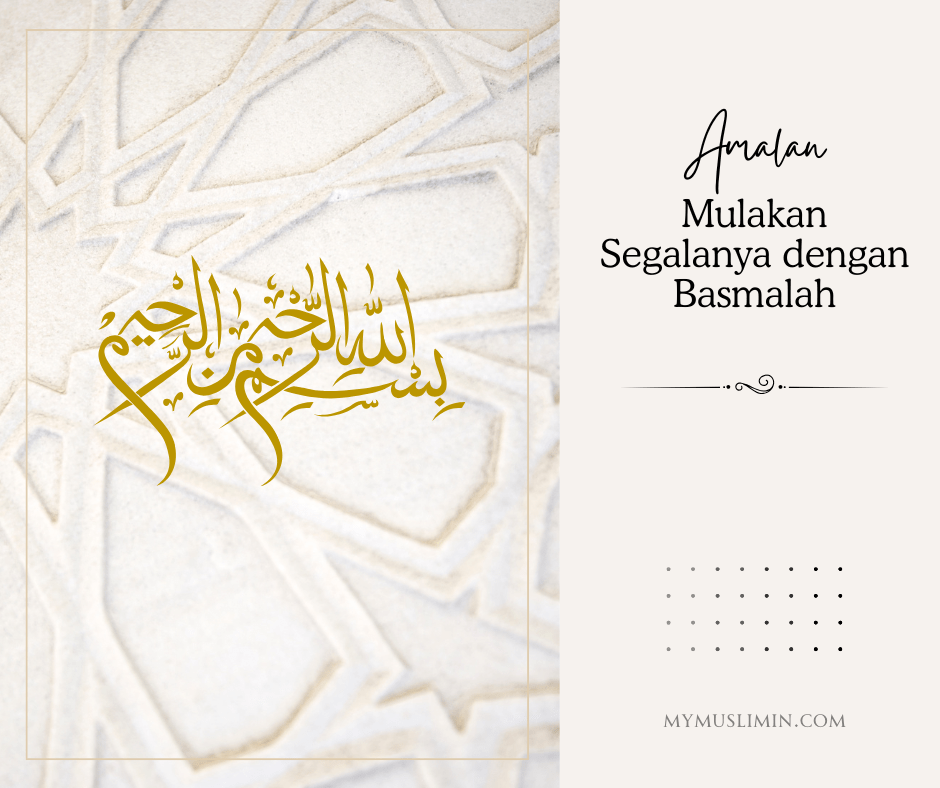 بسم الله الرحمن الرحيم
Amalan
Mulakan
Segalanya dengan
Basmalah
MYMUSLIMIN.COM